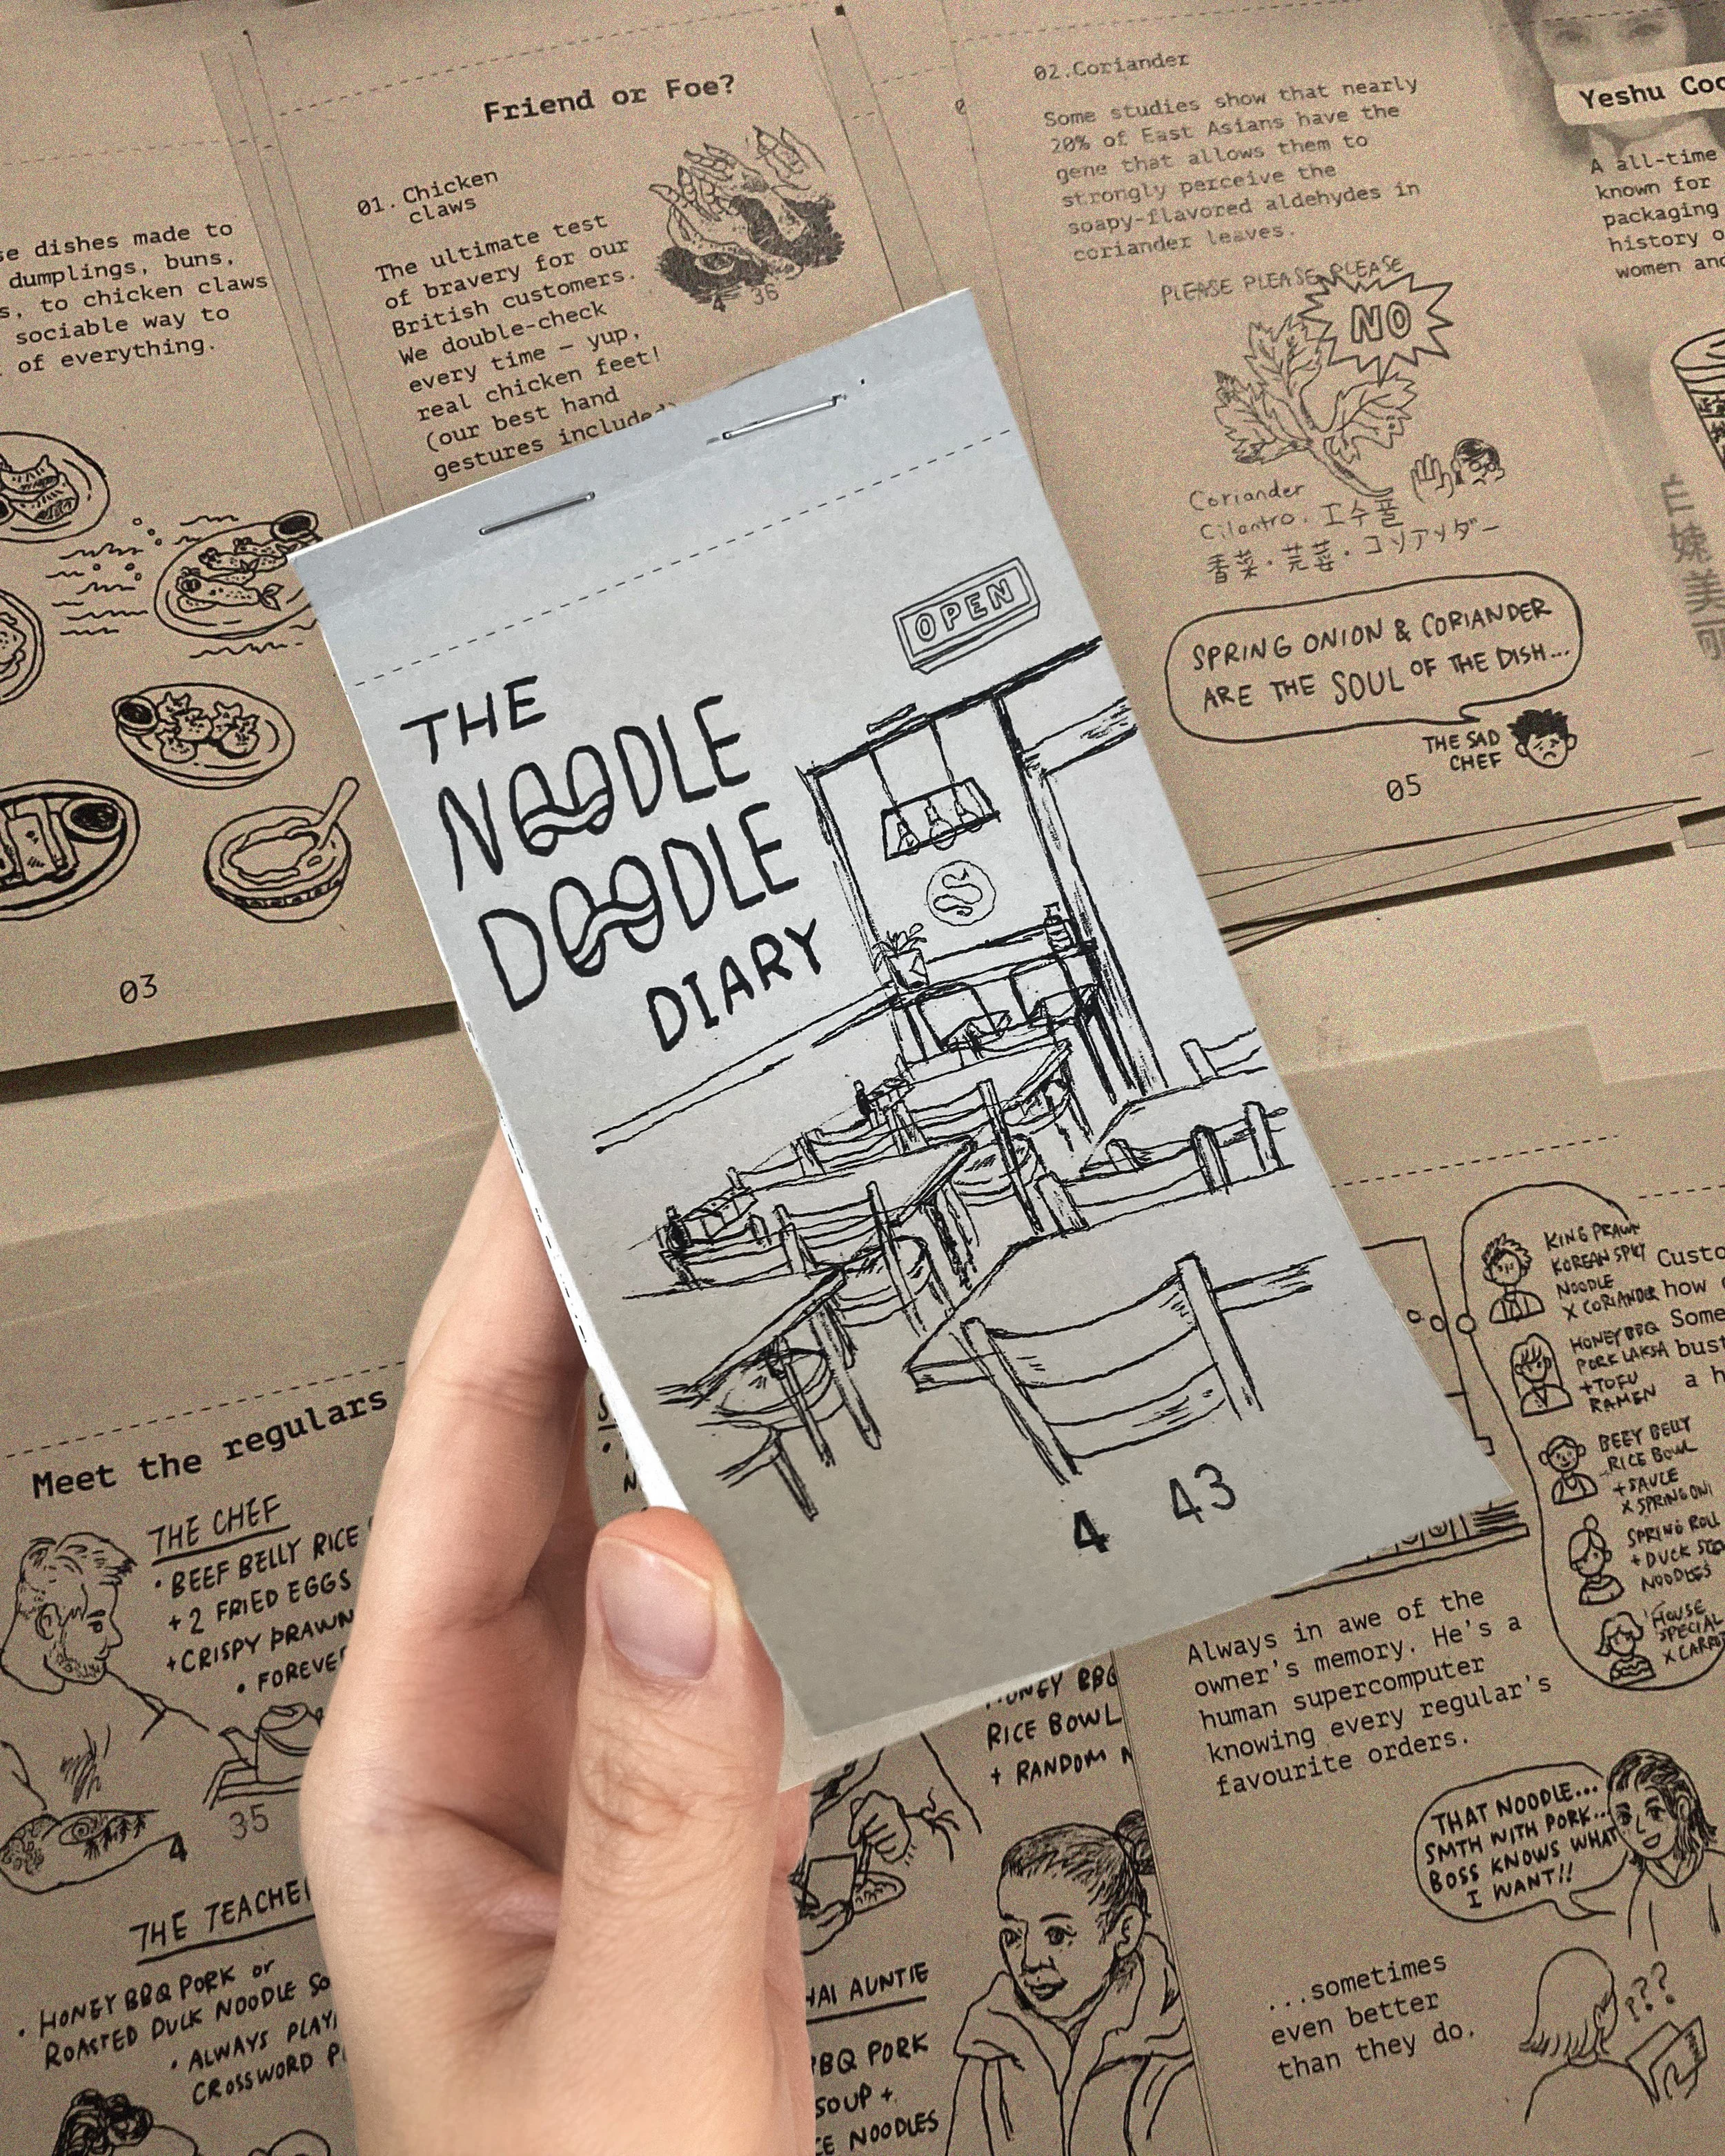 Friend or Foe?
01. Chicken
claws
The ultimate test
of bravery for our
British customers.
We double-check
every time — yup,
real chicken feet!
(our best hand
gestures included)
4 36
se dishes made to
dumplings, buns,
s, to chicken claws
sociable way to
of everything.
03
02.Coriander
Some studies show that nearly
20% of East Asians have the
gene that allows them to
strongly perceive the
soapy-flavored aldehydes in
coriander leaves.
PLEASE PLEASE PLEASE
NO
Coriander
Cilantro.
香菜・芫荽・
SPRING ONION & CORIANDER
ARE THE SOUL OF THE DISH...
THE SAD
CHEF
05
Yeshu Goo
A all-time
known for
packaging
history o
women and
OPEN
THE
NOODLE
DOODLE
DIARY
4 43
Meet the regulars
THE CHEF
• BEEF BELLY RICE
+ 2 FRIED EGGS
+ CRISPY PRAWN
• FOREVE
4 35
THE TEACHE
• HONEY BBQ PORK or
ROASTED DUCK NOODLE SO
• ALWAYS PLAY
CROSSWORD P
HONEY BBQ
RICE BOWL
+ RANDOM
HAI AUNTIE
BBQ PORK
SOUP +
CE NOODLES
KING PRAWN
KOREAN SPICY
NOODLE
X CORIANDER
HONEY BBQ
PORK LAKSA
+TOFU
RAMEN
BEEF BELLY
RICE BOWL
+SAUCE
X SPRING ONI
SPRING ROLL
+ DUCK SO
NOODLES
HOUSE
SPECIAL
X CARRO
Custo
how
Some
bust
a h
Always in awe of the
owner's memory. He's a
human supercomputer
knowing every regular's
favourite orders.
THAT NOODLE...
SMTH WITH PORK...
BOSS KNOWS WHAT
I WANT!!
...sometimes
even better
than they do.
???